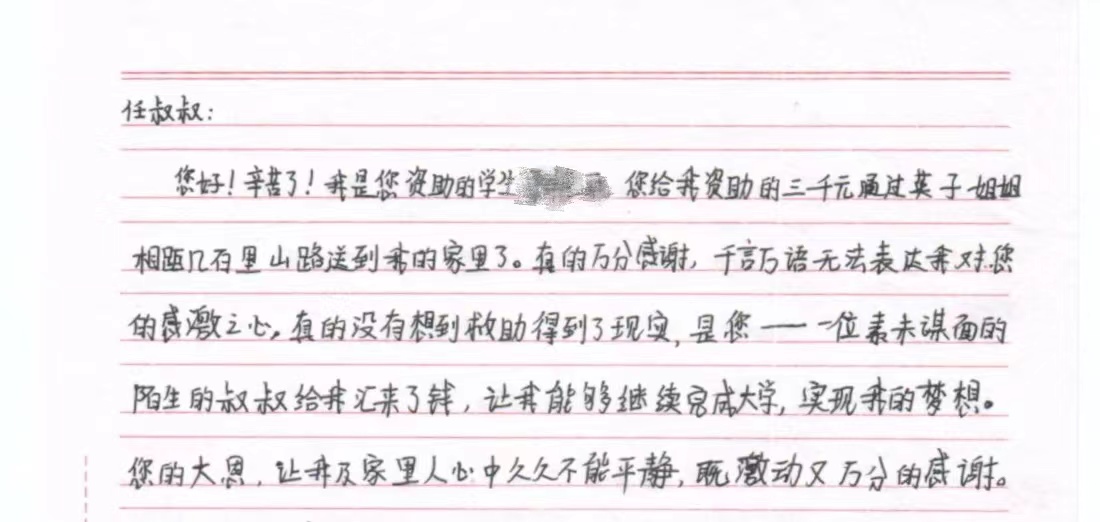 任叔叔:
您好!辛苦了!我是您资助的学生 您给我资助的三千元通过英子姐姐
相距几百里山路送到我的家里了。真的万分感谢,千言万语无法表达我对您
的感激之心。真的没有想到救助得到了现实,是您——一位素未谋面的
陌生的叔叔给我汇来了钱,让我能够继续完成大学,实现我的梦想。
您的大恩,让我及家里人心中久久不能平静,既激动又万分的感谢。